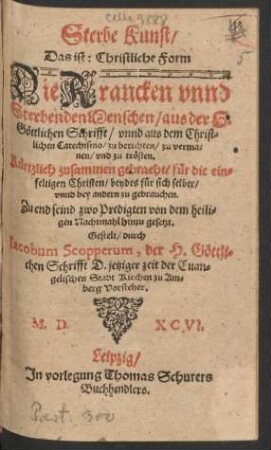 Celle 3888
Sterbe Kunst/
Das ist: Christliche Form
Die Krancken vnnd
Sterbenden Menschen/ aus der H.
Göttlichen Schrifft/ vnnd aus dem Christ-
lichen Catechismo/ zu berichten/ zu verma-
nen/ vnd zu trösten.
Kürtzlich zusammen gebracht/ für die ein-
feltigen Christen/ beydes für sich selber/
vnnd bey andern zu gebrauchen.
Zu end seind zwo Predigten von dem heili-
gen Nachtmahl hinzu gesetzt.
Gestelt/ durch
Iacobum Scopperum, der H. Göttli-
chen Schrifft D. jetziger zeit der Euan-
gelischen Stadt Kirchen zu Am-
berg Vorsteher.
M. D. XCVI.
Leipzig/
In vorlegung Thomas Schurers
Buchhendlers.
Past. 300